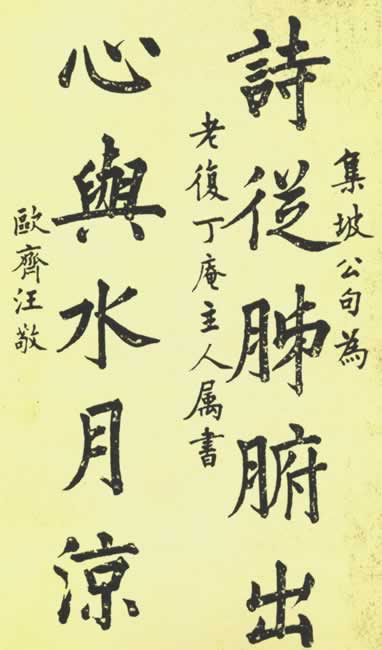 集坡公句為
詩從肺腑出
老復丁庵主人属書
心與水月涼
歐齊汪敬